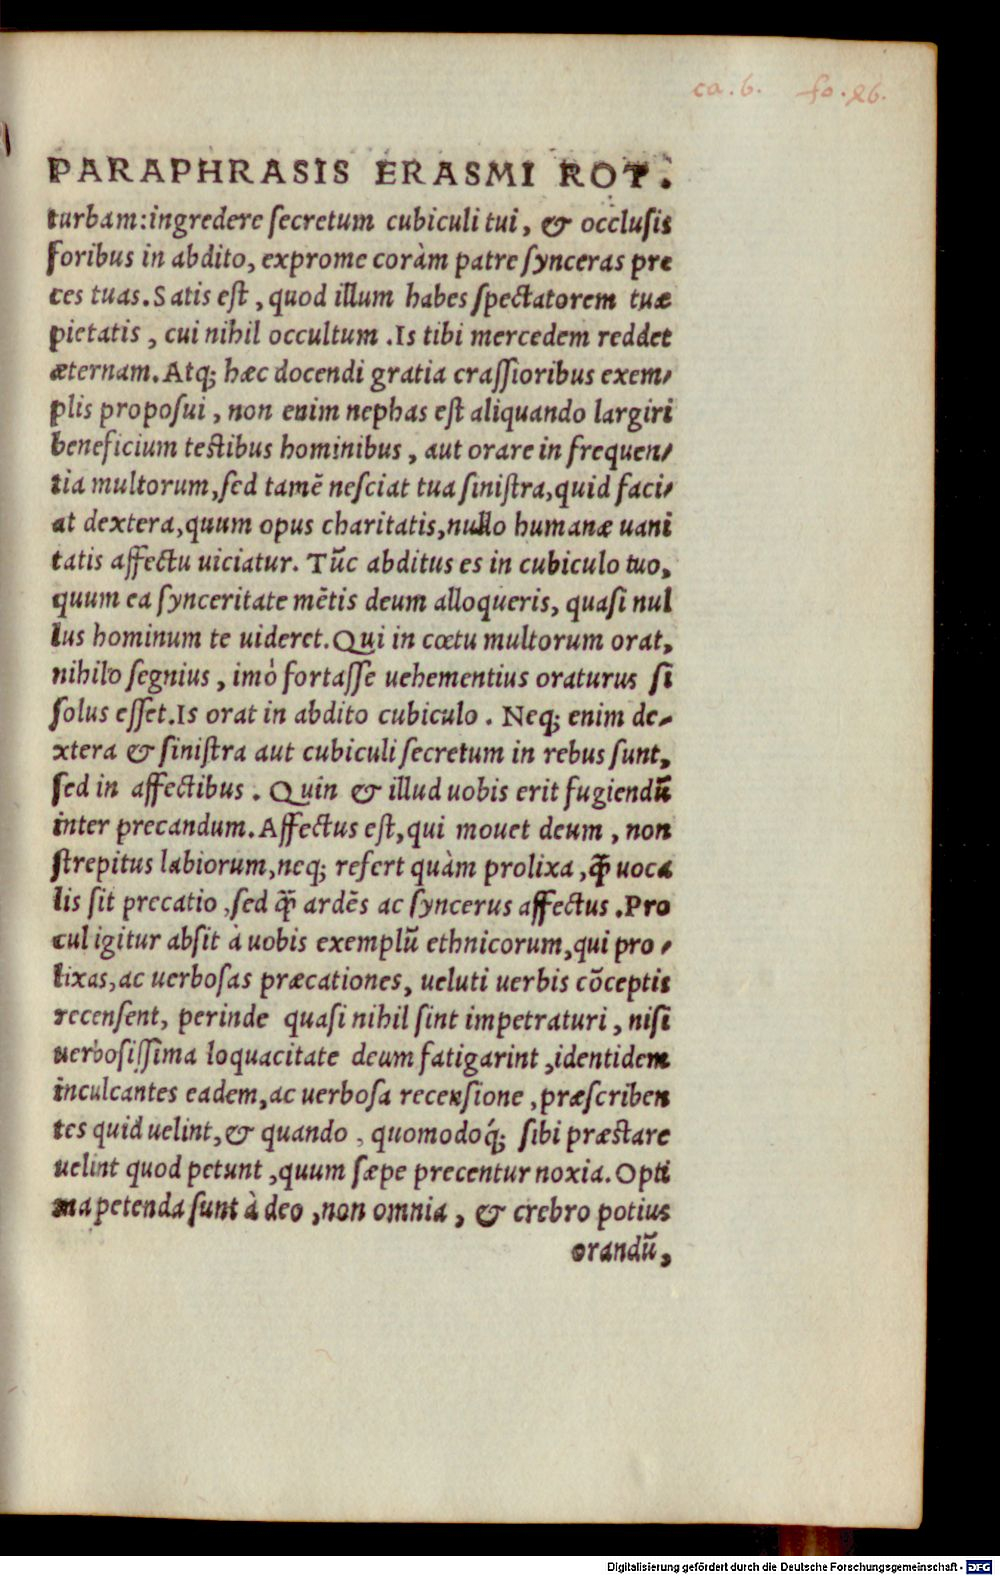 ca. 6. fo. 86.
PARAPHRASIS ERASMI ROT.
turbam: ingredere ſecretum cubiculi tui, & occluſis
foribus in abdito, exprome coràm patre ſynceras pre
ces tuas. Satis eſt, quod illum habes ſpectatorem tuæ
pietatis, cui nihil occultum. Is tibi mercedem reddet
æternam. Atq; hæc docendi gratia craſſioribus exem⸗
plis propoſui, non enim nephas eſt aliquando largiri
beneficium teſtibus hominibus, aut orare in frequen⸗
tia multorum, ſed tamẽ neſciat tua ſiniſtra, quid faci⸗
at dextera, quum opus charitatis, nullo humanæ uani
tatis affectu uiciatur. Tũc abditus es in cubiculo tuo,
quum ea ſynceritate mẽtis deum alloqueris, quaſi nul
lus hominum te uideret. Qui in cœtu multorum orat,
nihilo ſegnius, imò fortaſſe uehementius oraturus ſi
ſolus eſſet. Is orat in abdito cubiculo. Neq; enim de⸗
xtera & ſiniſtra aut cubiculi ſecretum in rebus ſunt,
ſed in affectibus. Quin & illud uobis erit fugiendũ
inter precandum. Affectus eſt, qui mouet deum, non
ſtrepitus labiorum, neq; refert quàm prolixa, q̃ uoca
lis ſit precatio, ſed q̃ ardẽs ac ſyncerus affectus. Pro
cul igitur abſit à uobis exemplũ ethnicorum, qui pro⸗
lixas, ac uerboſas præcationes, ueluti uerbis cõceptis
recenſent, perinde quaſi nihil ſint impetraturi, niſi
uerboſiſſima loquacitate deum fatigarint, identidem
inculcantes eadem, ac uerboſa recenſione, præſcriben
tes quid uelint, & quando, quomodoq́; ſibi præſtare
uelint quod petunt, quum ſæpe precentur noxia. Opti
ma petenda ſunt à deo, non omnia, & crebro potius
orandũ,
Digitalisierung gefördert durch die Deutsche Forschungsgemeinschaft - DFG